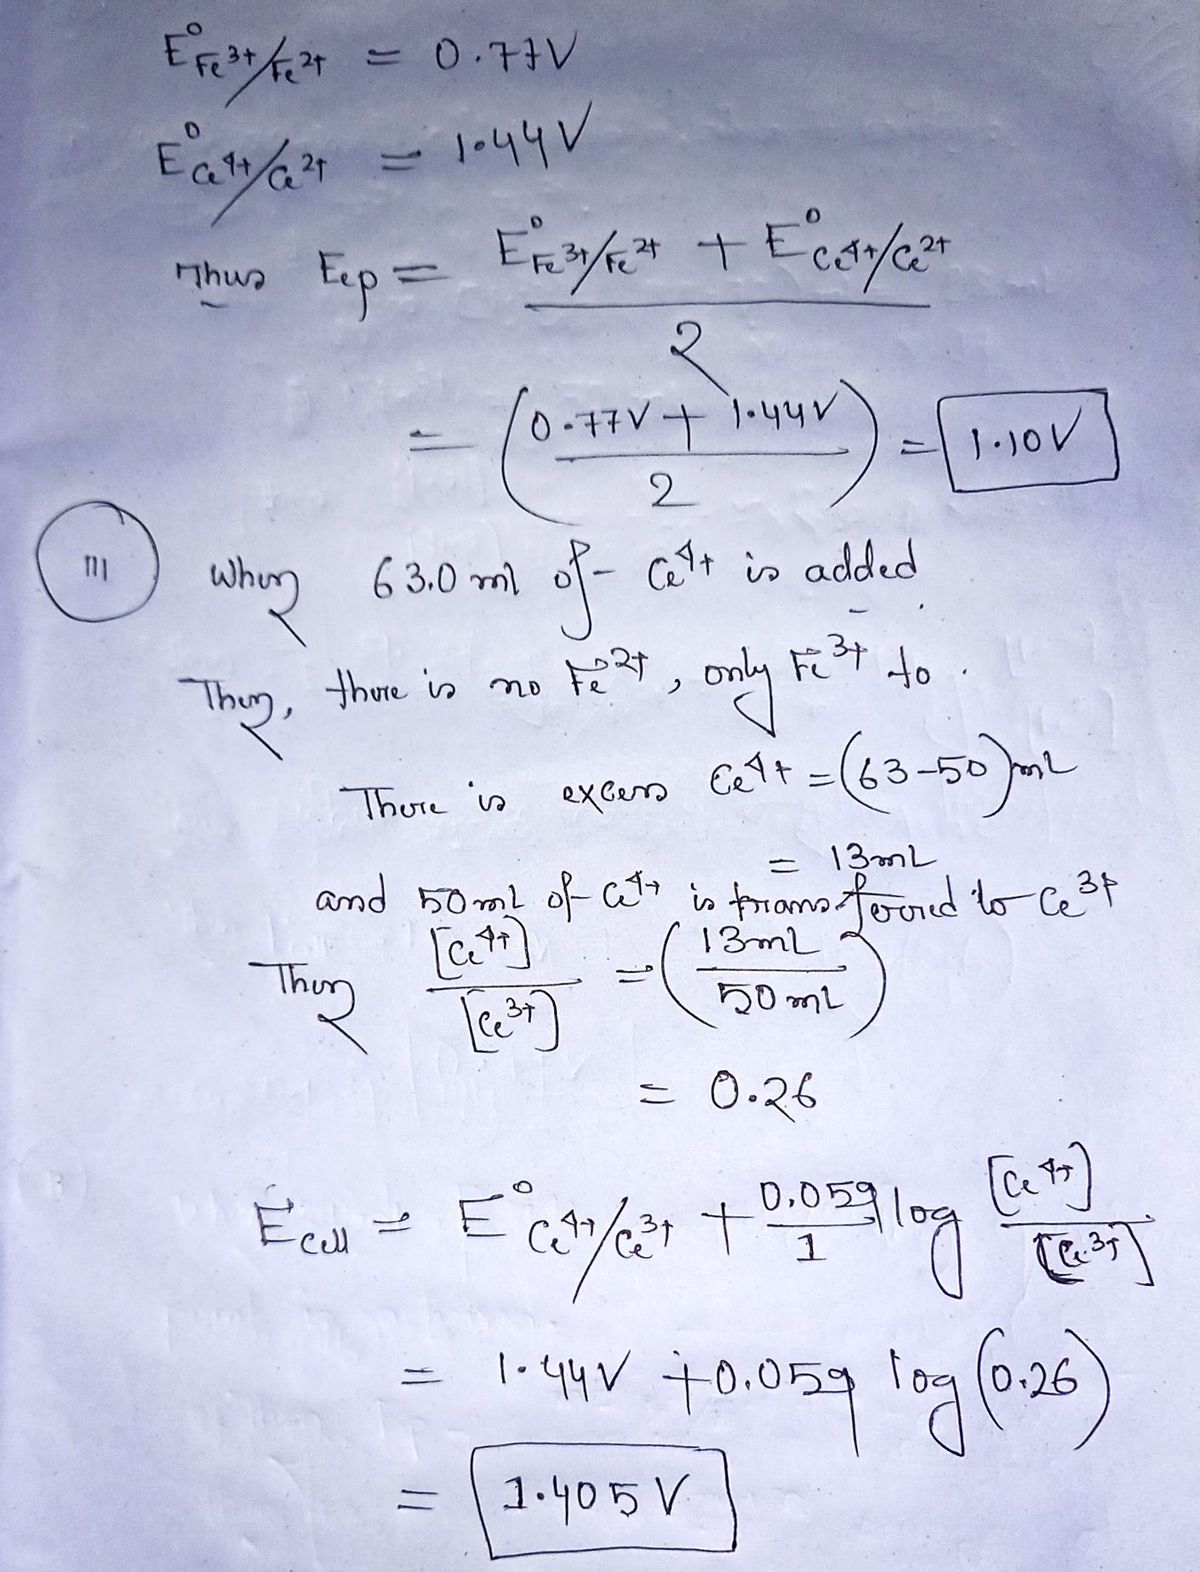 E⁰Fe³⁺/Fe²⁺ = 0.77V
E⁰Ce⁴⁺/Ce²⁺ = 1.44V
Thus Eep = E⁰Fe³⁺/Fe²⁺ + E⁰Ce⁴⁺/Ce²⁺
2
= (0.77V + 1.44V / 2) = 1.10V
III When 63.0 ml of Ce⁴⁺ is added.
Then, there is no Fe²⁺, only Fe³⁺ to.
There is excess Ce⁴⁺ = (63-50)mL
= 13mL
and 50mL of Ce⁴⁺ is transferred to Ce³⁺
Then [Ce⁴⁺]/[Ce³⁺] = (13mL/50mL)
= 0.26
Ecell = E⁰Ce⁴⁺/Ce³⁺ + 0.059/1 log [Ce⁴⁺]/[Ce³⁺]
= 1.44V + 0.059 log (0.26)
= 1.405V